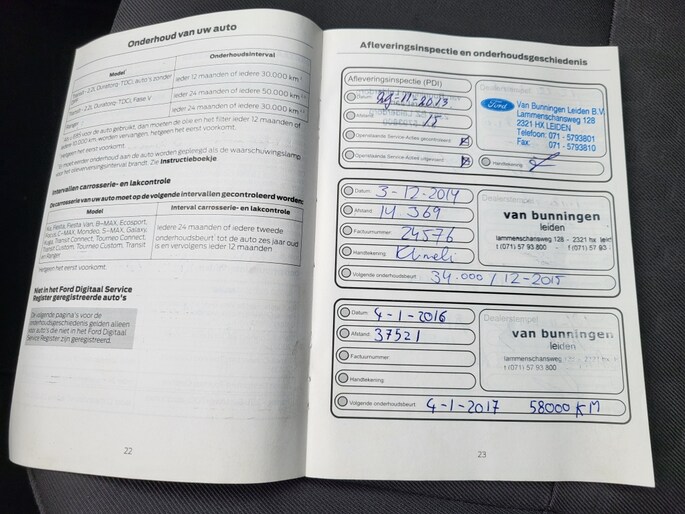 Onderhoud van uw auto
Model
Onderhoudsinterval
Transit - 2.2L Duratorq-TDCi, auto's zonder
Ieder 12 maanden of iedere 30.000 km
Transit - 2.2L Duratorq-TDCi, Fase V
Ieder 24 maanden of iedere 50.000 km
Ranger
Ieder 24 maanden of iedere 30.000 km
hetgeen het eerst voorkomt.
brandt. Zie Instructieboekje
Intervallen carrosserie- en lakcontrole
De carrosserie van uw auto moet op de volgende intervallen gecontroleerd worden:
Model
Interval carrosserie- en lakcontrole
Ka, Fiesta, Fiesta Van, B-MAX, Ecosport,
Focus, C-MAX, Mondeo, S-MAX, Galaxy,
Kuga, Transit Connect, Tourneo Connect,
Transit Custom, Tourneo Custom, Transit
en Ranger
Iedere 24 maanden of iedere tweede
onderhoudsbeurt tot de auto zes jaar oud
is en vervolgens ieder 12 maanden
hetgeen het eerst voorkomt.
Niet in het Ford Digitaal Service
Register geregistreerde auto's
De volgende pagina's voor de
onderhoudsgeschiedenis gelden alleen
voor auto's die niet in het Ford Digitaal
Service Register zijn geregistreerd.
22
Afleveringsinspectie en onderhoudsgeschiedenis
Afleveringsinspectie (PDI)
Datum: 29-11-2013
Afstand: 15
Openstaande Service-Acties gecontroleerd
Openstaande Service-Acties uitgevoerd
Ford
Van Bunningen Leiden B.V.
Lammenschansweg 128
2321 HX LEIDEN
Telefoon: 071 - 5793801
Fax: 071 - 5793810
Handtekening:
Datum: 3-12-2014
Afstand: 14.369
Factuurnummer: 24576
Handtekening:
Volgende onderhoudsbeurt: 34.000 / 12-2015
van bunningen
leiden
lammenschansweg 128 - 2321 hx
t (071) 57 93 800
Datum: 4-1-2016
Afstand: 37521
Factuurnummer:
Handtekening:
Volgende onderhoudsbeurt: 4-1-2017 58000 KM
Dealerstempel
van bunningen
leiden
lammenschansweg
t (071) 57 93 800
23